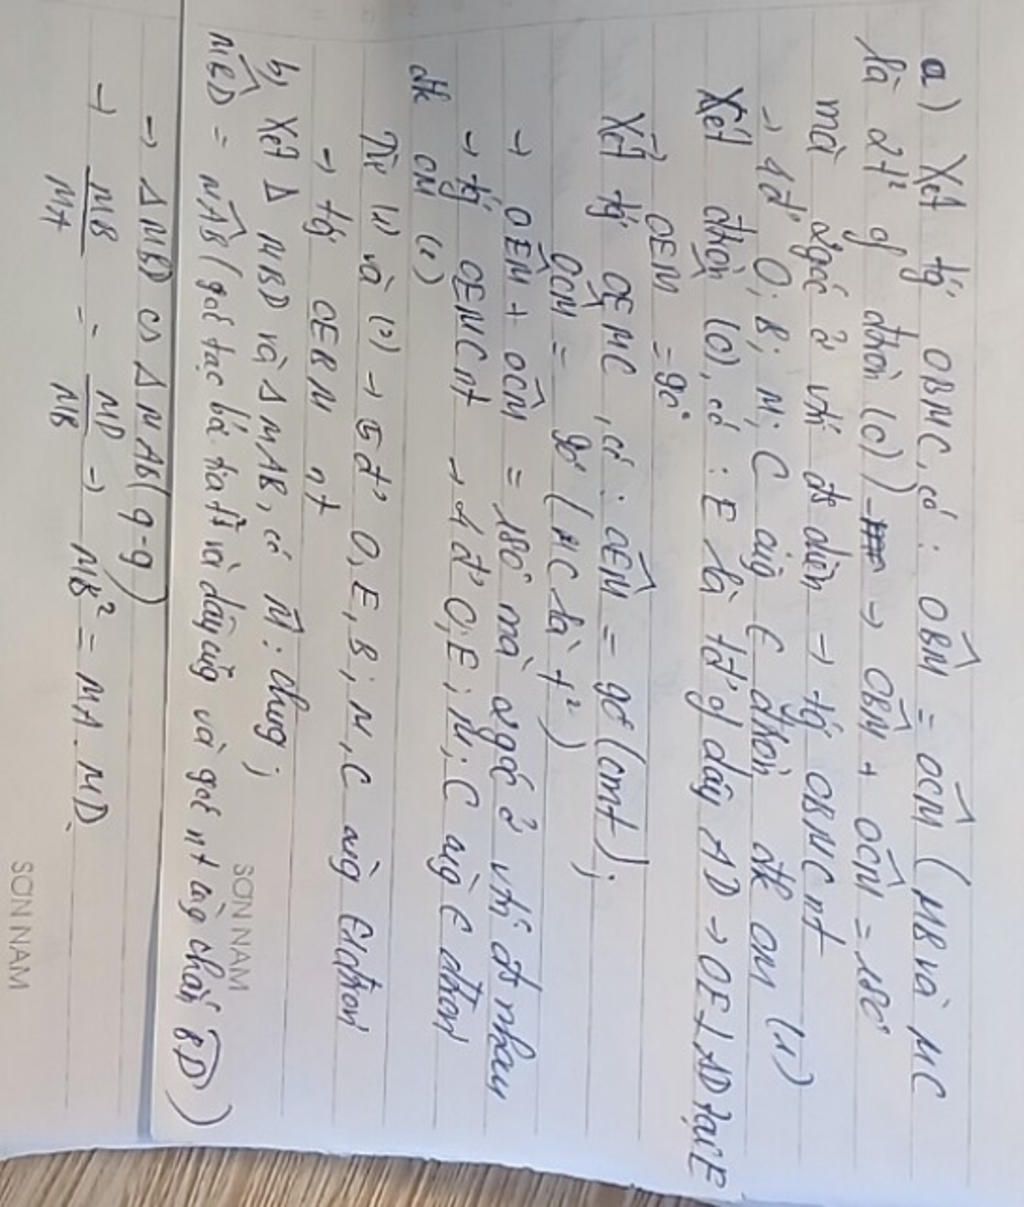 a) Xét tg OBMC, có: OB̂M = OĈM (MB và MC
là 2t² of đtròn (O)) → OB̂M + OĈM = 180°
mà 2góc ở vtrí đ diện → tg OBMC nt
→ 4đ' O; B; M; C cùg ∈ đtròn đk OM (1)
Xét đtròn (O), có: E là tđ' of dây AD → OE ⊥ AD tại E
→ OEM = 90°
Xét tg OEMC, có: OÊM = 90° (cmt);
OĈM = 90° (MC là t²)
→ OÊM + OĈM = 180° mà 2góc ở vtrí đ nhau
→ tg OEMC nt → 4đ' O; E; M; C cùg ∈ đtròn
đk OM (2)
Từ (1) và (2) → 5đ' O, E, B; M, C cùg ∈ 1 đtròn
→ tg OEBM nt
b, Xét Δ MBD và Δ MAB, có M̂: chug;
MB̂D = MÂB (góc tạo bởi tia t² và dây cug và góc nt cùg chắn BD)
→ Δ MBD ∽ Δ MAB (g-g)
→ MB/MA = MD/MB → MB² = MA . MD.
SƠN NAM
SƠN NAM